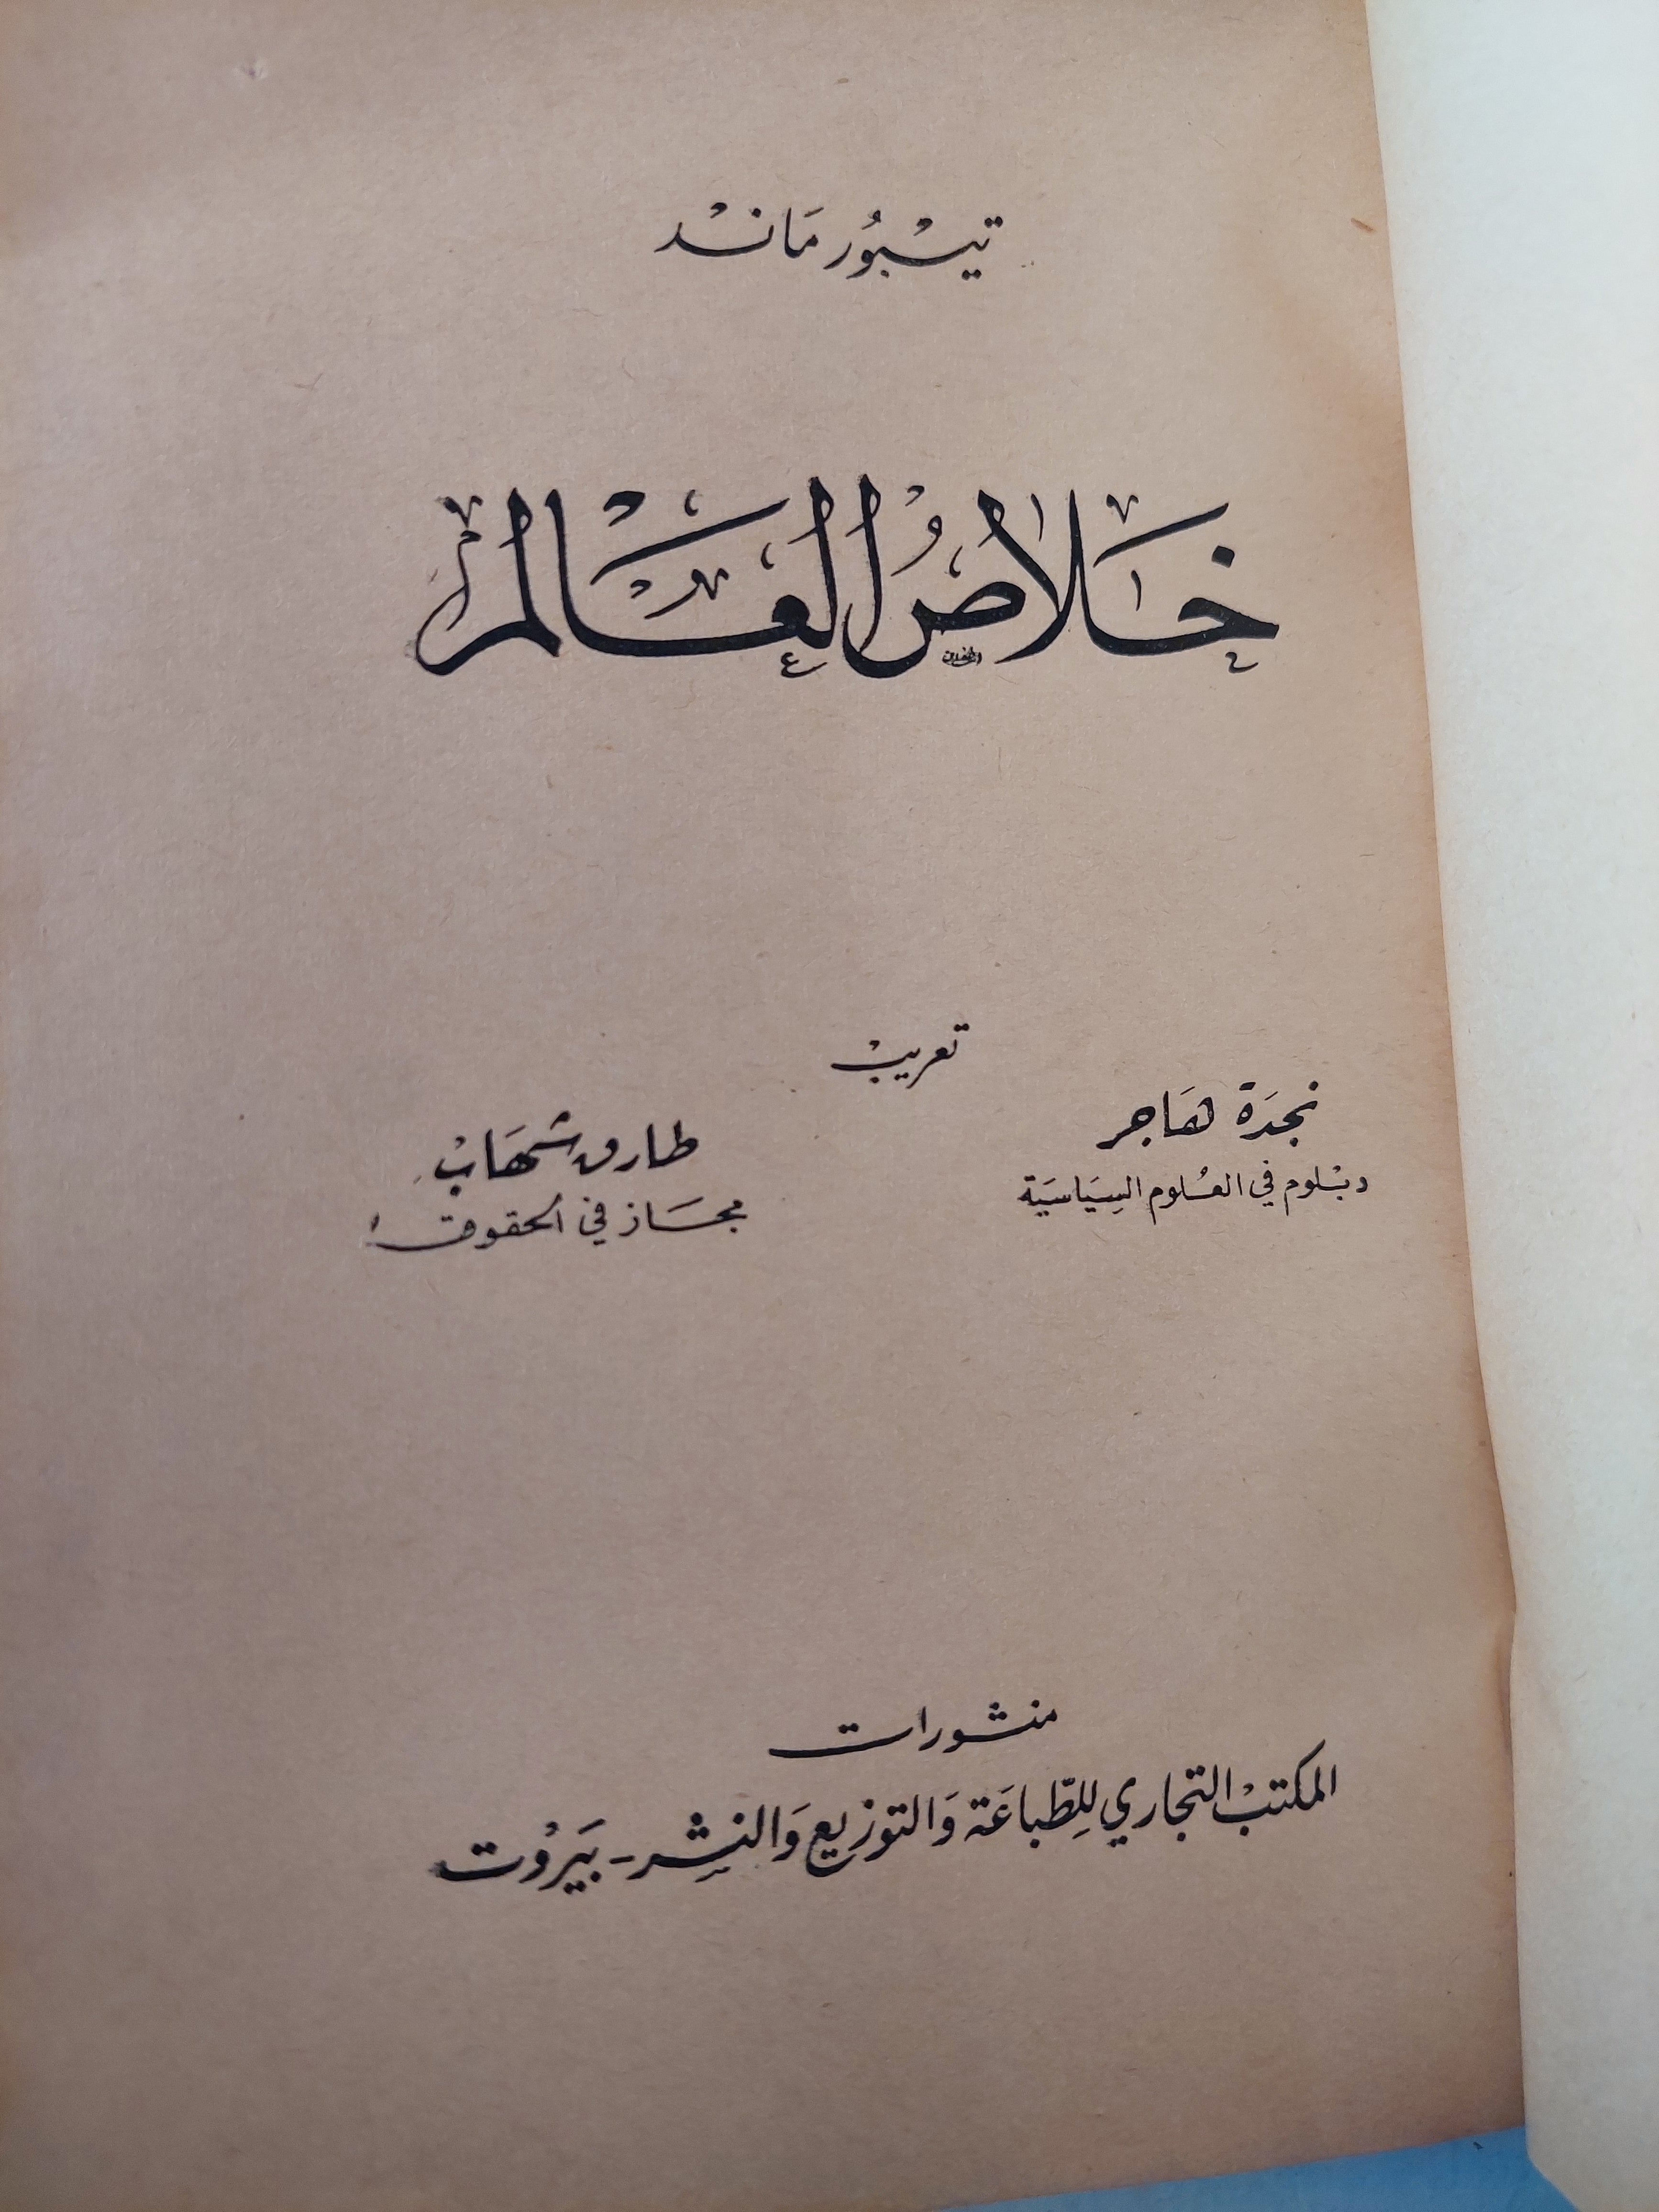 تيسْبُور مَاندْ
خَلاصُ العَالم
تعريبْ
نجدَة هَاجر
دبْلوم في العُلوم السِيَاسيَة
طارق شهَابْ
مجَاز في الحقوق
منشورات
المكتبْ التجاري للِطّباعَة وَالتوزيع وَالنشْر - بَيرُوت